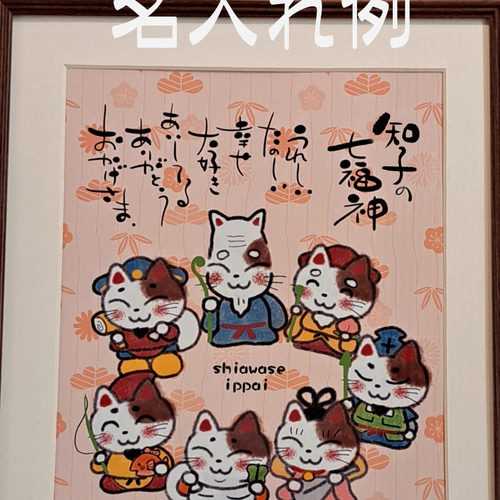 名入れ例
知子の
七福神
うれしい…
たのしい…
幸せ
大好き
あいしてる
ありがとう
おかげさま.
shiawase
ippai